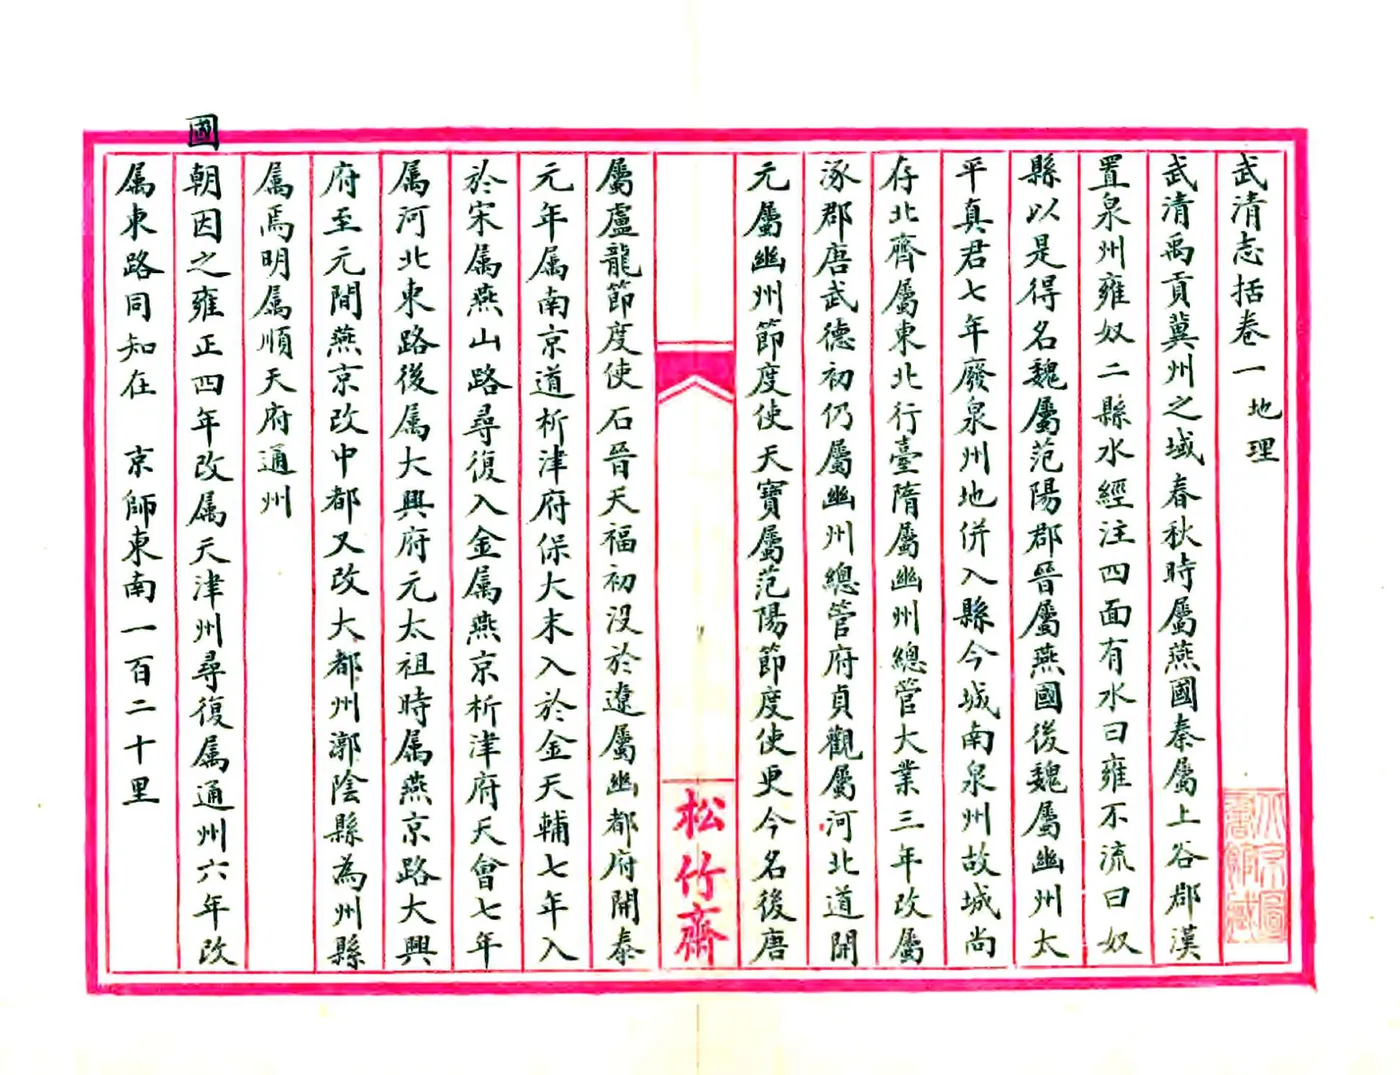 武清志括卷一 地理
武清禹貢冀州之域春秋時屬燕國秦屬上谷郡漢
置泉州雍奴二縣水經注四面有水曰雍不流曰奴
縣以是得名魏屬范陽郡晉屬燕國後魏屬幽州太
平真君七年廢泉州地併入縣今城南泉州故城尚
存北齊屬東北行臺隋屬幽州總管大業三年改屬
涿郡唐武德初仍屬幽州總管府貞觀屬河北道開
元屬幽州節度使天寶屬范陽節度使更今名後唐
松竹齋
屬盧龍節度使石晉天福初沒於遼屬幽都府開泰
元年属南京道析津府保大末入於金天輔七年入
於宋属燕山路尋復入金属燕京析津府天會七年
属河北東路後属大興府元太祖時属燕京路大興
府至元間燕京改中都又改大都州漷陰縣為州縣
属焉明属順天府通州
國朝因之雍正四年改属天津州尋復属通州六年改
属東路同知在 京師東南一百二十里